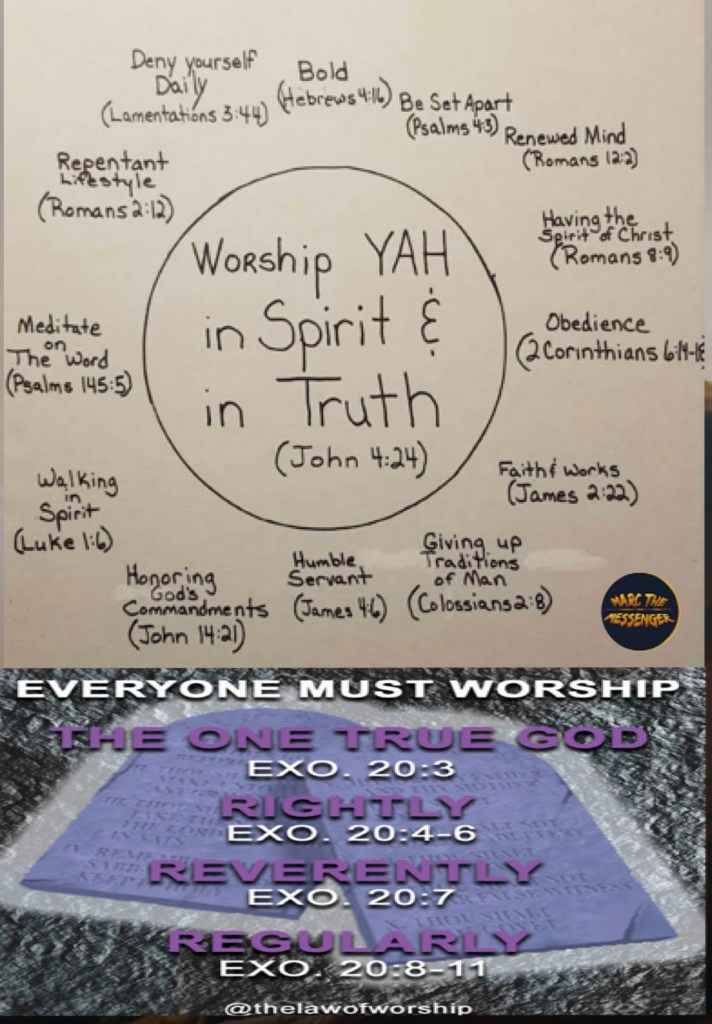 Deny yourself
Daily
(Lamentations 3:44)
Bold
(Hebrews 4:16)
Be Set Apart
(Psalms 4:3)
Renewed Mind
(Romans 12:2)
Repentant
Lifestyle
(Romans 2:12)
Having the
Spirit of Christ
(Romans 8:9)
Worship YAH
in Spirit &
in Truth
(John 4:24)
Meditate
on
The Word
(Psalms 145:5)
Obedience
(2 Corinthians 6:14-18
Walking
in
Spirit
(Luke 1:6)
Faith & Works
(James 2:22)
Honoring
God's
Commandments
(John 14:21)
Humble
Servant
(James 4:6)
Giving up
Traditions
of Man
(Colossians 2:8)
MARC THE
MESSENGER
EVERYONE MUST WORSHIP
THE ONE TRUE GOD
EXO. 20:3
RIGHTLY
EXO. 20:4-6
REVERENTLY
EXO. 20:7
REGULARLY
EXO. 20:8-11
@thelawofworship